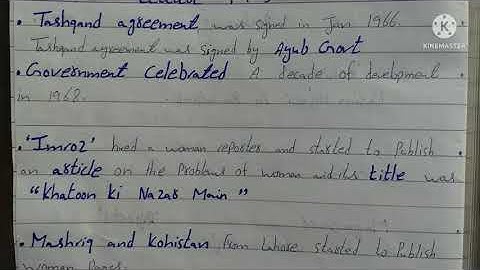 • Tashqand agreement was signed in Jan 1966.
Tashqand agreement was signed by Ayub Govt
• Government Celebrated A decade of development
in 1968.
• 'Imroz' hired a woman reporter and started to Publish
an article on the Problems of women and its title was
"Khatoon ki Nazar Main"
• Mashriq and Kohistan from Lahore started to Publish
women Pages.
KINEMASTER